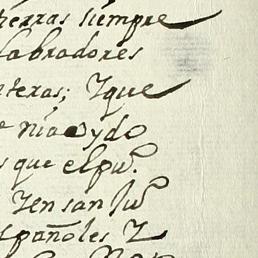 tierras siempre
labradores
nteras; Yque
e nia oydo
s que elpu.º
Yen san Ju.º
spañoles Y